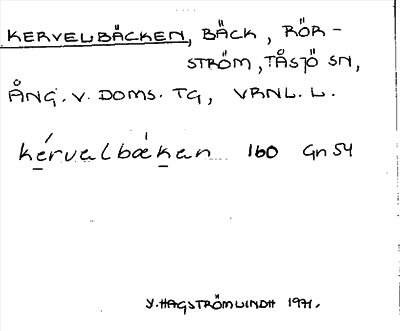 KERVELBÄCKEN, BÄCK, RÖR-
STRÖM, TÅSJÖ SN,
ÅNG. V. DOMS. TG, VRNL. L.
kérvalbækan 160 Gn 54
Y. HAGSTRÖMLINDH 1971.